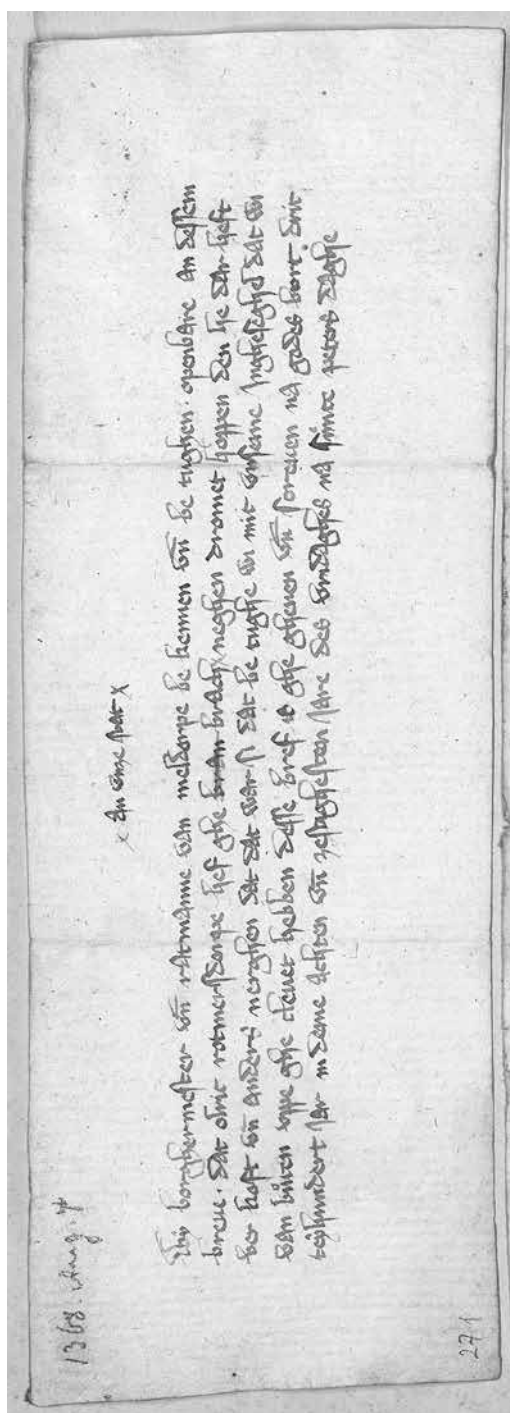 1368. Aug. 4
x an eme svar x
Wy borghermester vn̄ ratmanne van meldorpe be kennen vn̄ be tughen openbare an dessem
breue. dat oluic rotmersdorpe hef ghe bran brach neghen dromet hoppen den he dar heft
ber heft vn̄ anders nerghen dat dat war si dat be tughe wi mit vnseme Jngheseghel dat wi
dan buten vppe ghe drucet hebben desse bref is ghe gheuen vn̄ screuen na godes bort drit
teyhundert Jar in deme achten vn̄ sestigesten Jare des vridaghes na sunte peters daghe
271